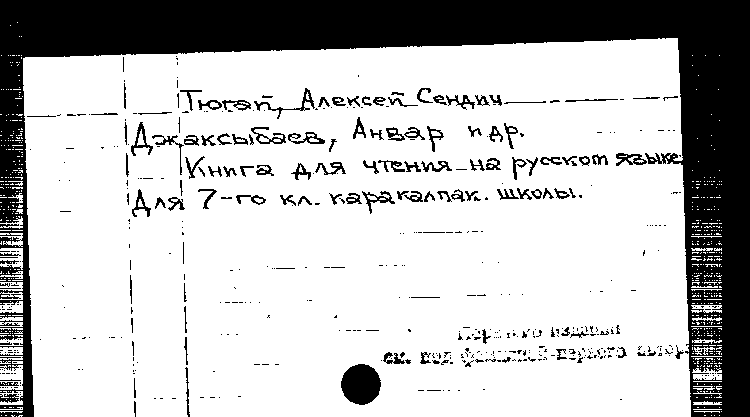 Тюгай, Алексей Сендич
Джаксыбаев, Анвар и др.
Книга для чтения на русском языке.
Для 7-го кл. каракалпак. школы.
издания
см. под фамилией первого автора